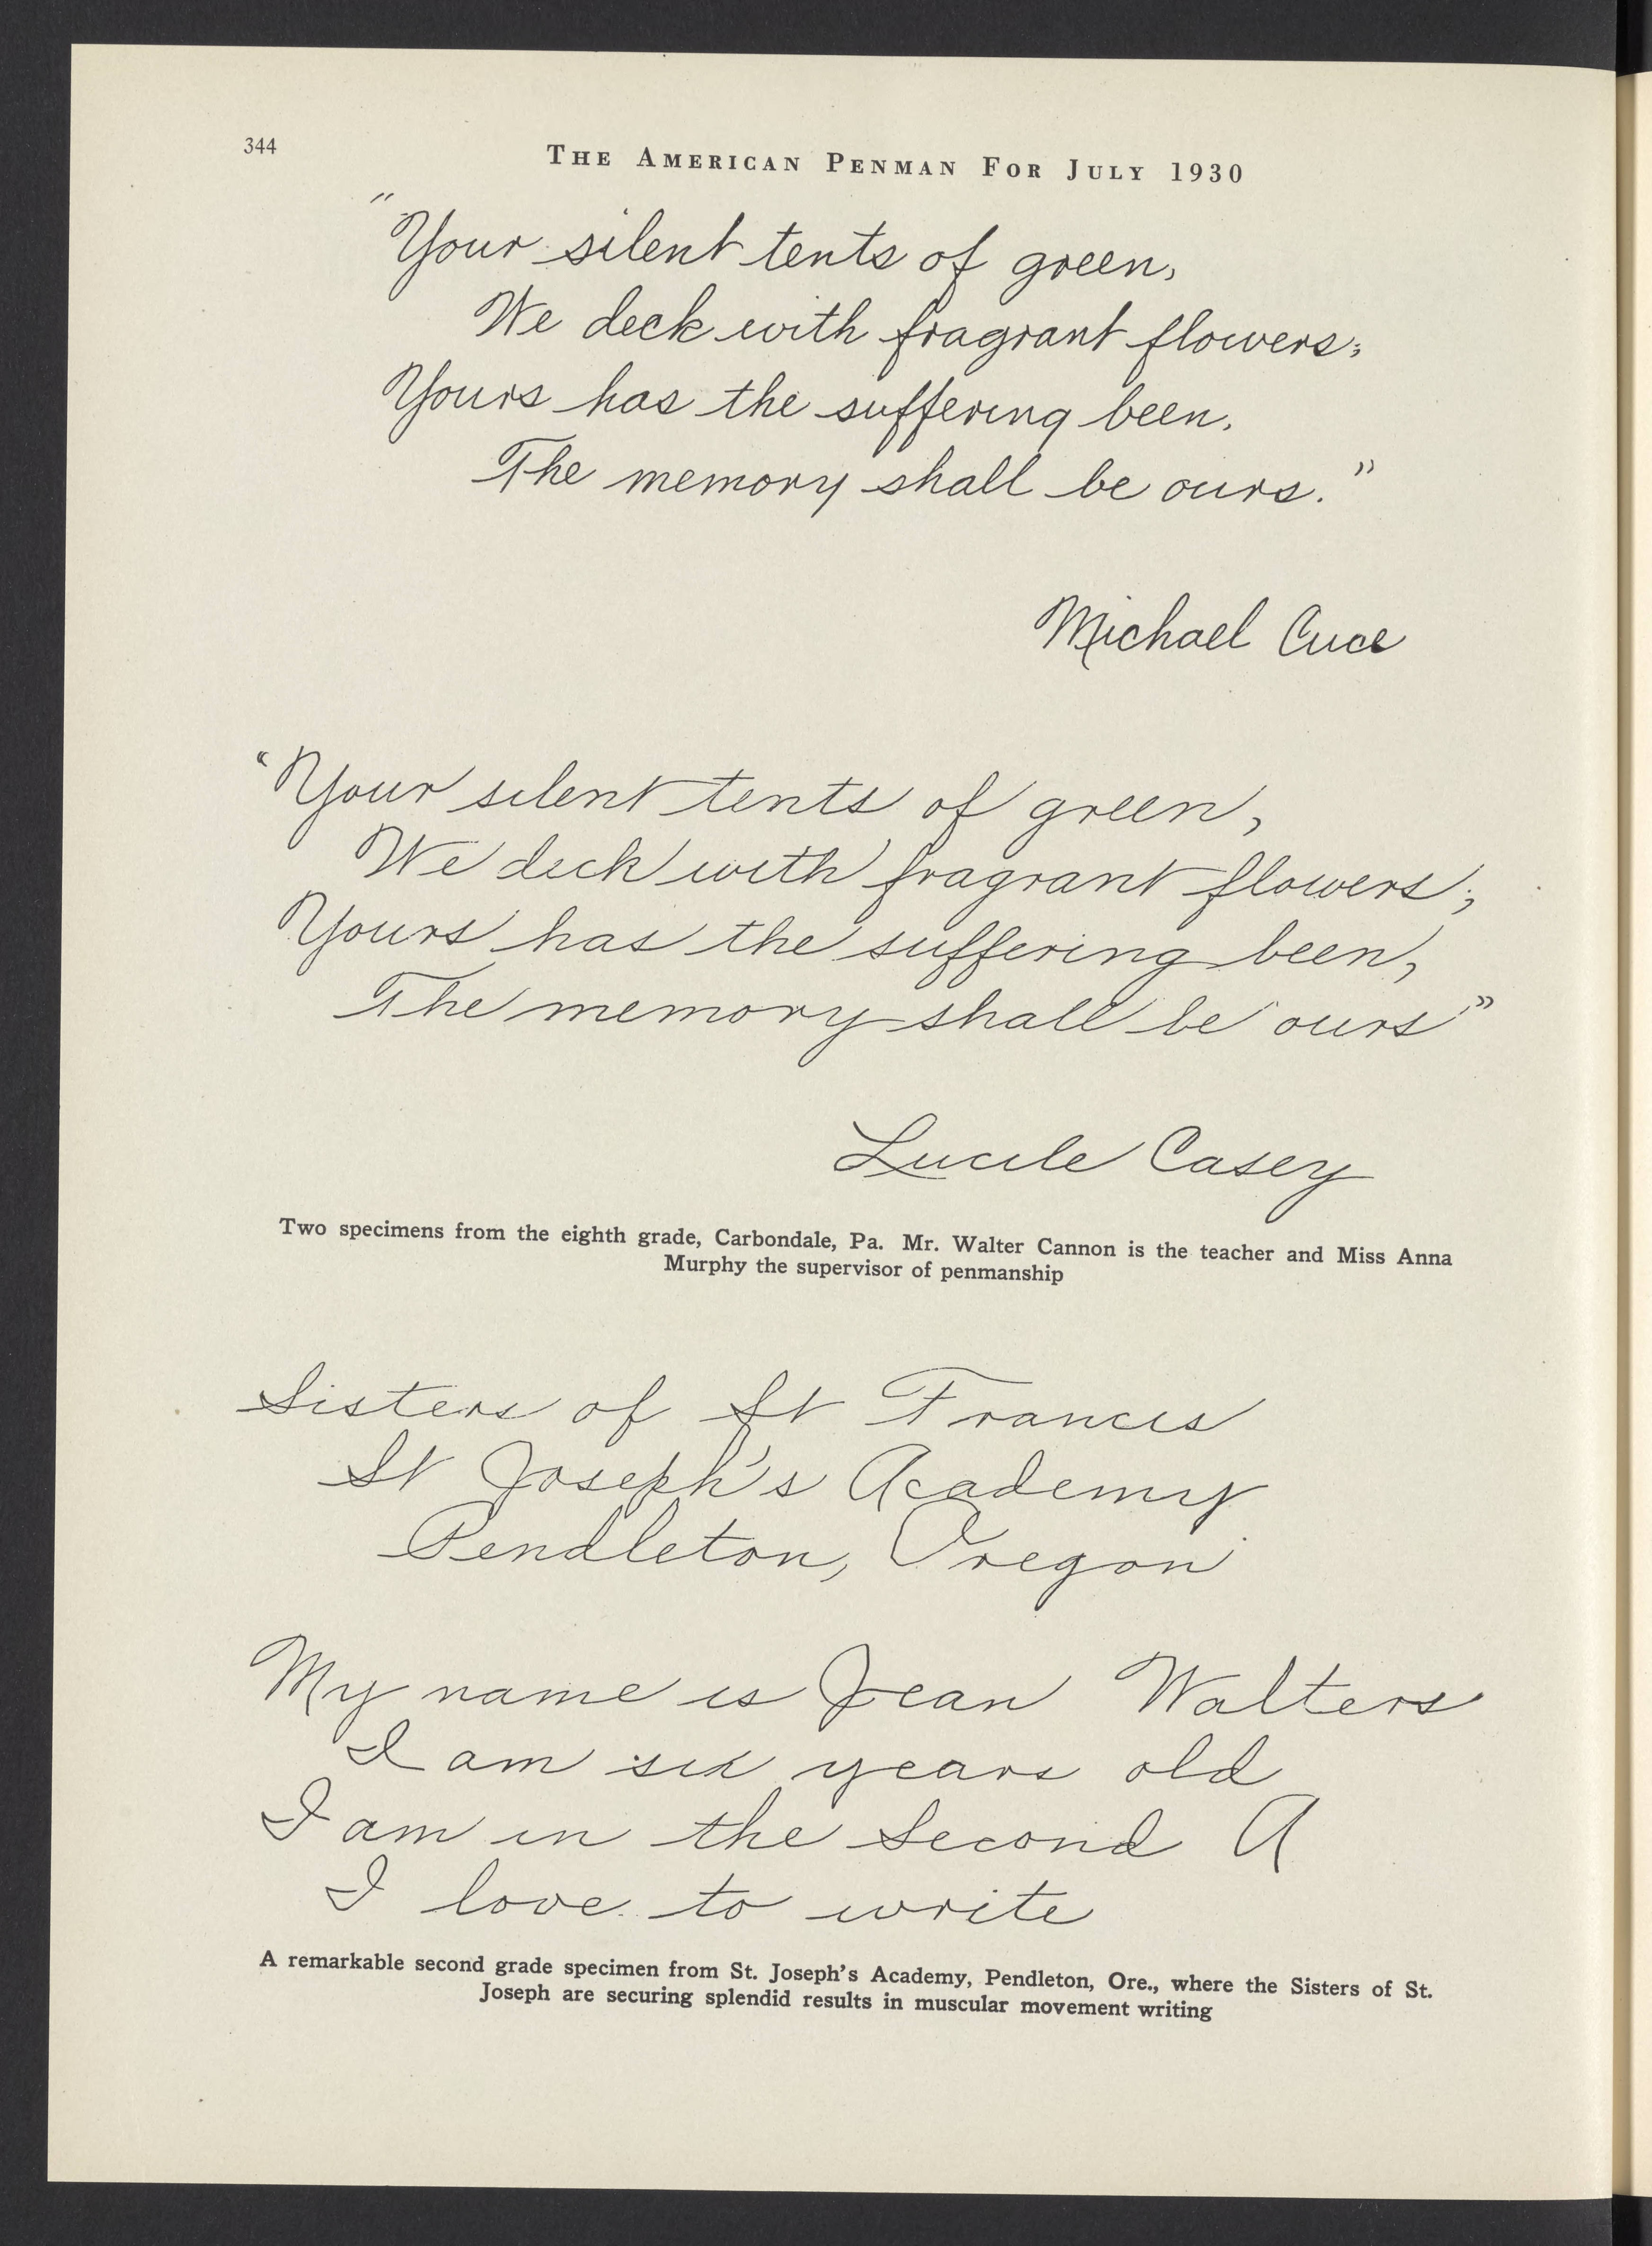 344
THE AMERICAN PENMAN FOR JULY 1930
"Your silent tents of green,
We deck with fragrant flowers;
Yours has the suffering been,
The memory shall be ours."
Michael Cuce
"Your silent tents of green,
We deck with fragrant flowers;
Yours has the suffering been,
The memory shall be ours"
Lucile Casey
Two specimens from the eighth grade, Carbondale, Pa. Mr. Walter Cannon is the teacher and Miss Anna
Murphy the supervisor of penmanship
Sisters of St Francis
St Joseph's Academy
Pendleton, Oregon
My name is Jean Walters
I am six years old
I am in the Second A
I love to write
A remarkable second grade specimen from St. Joseph's Academy, Pendleton, Ore., where the Sisters of St.
Joseph are securing splendid results in muscular movement writing